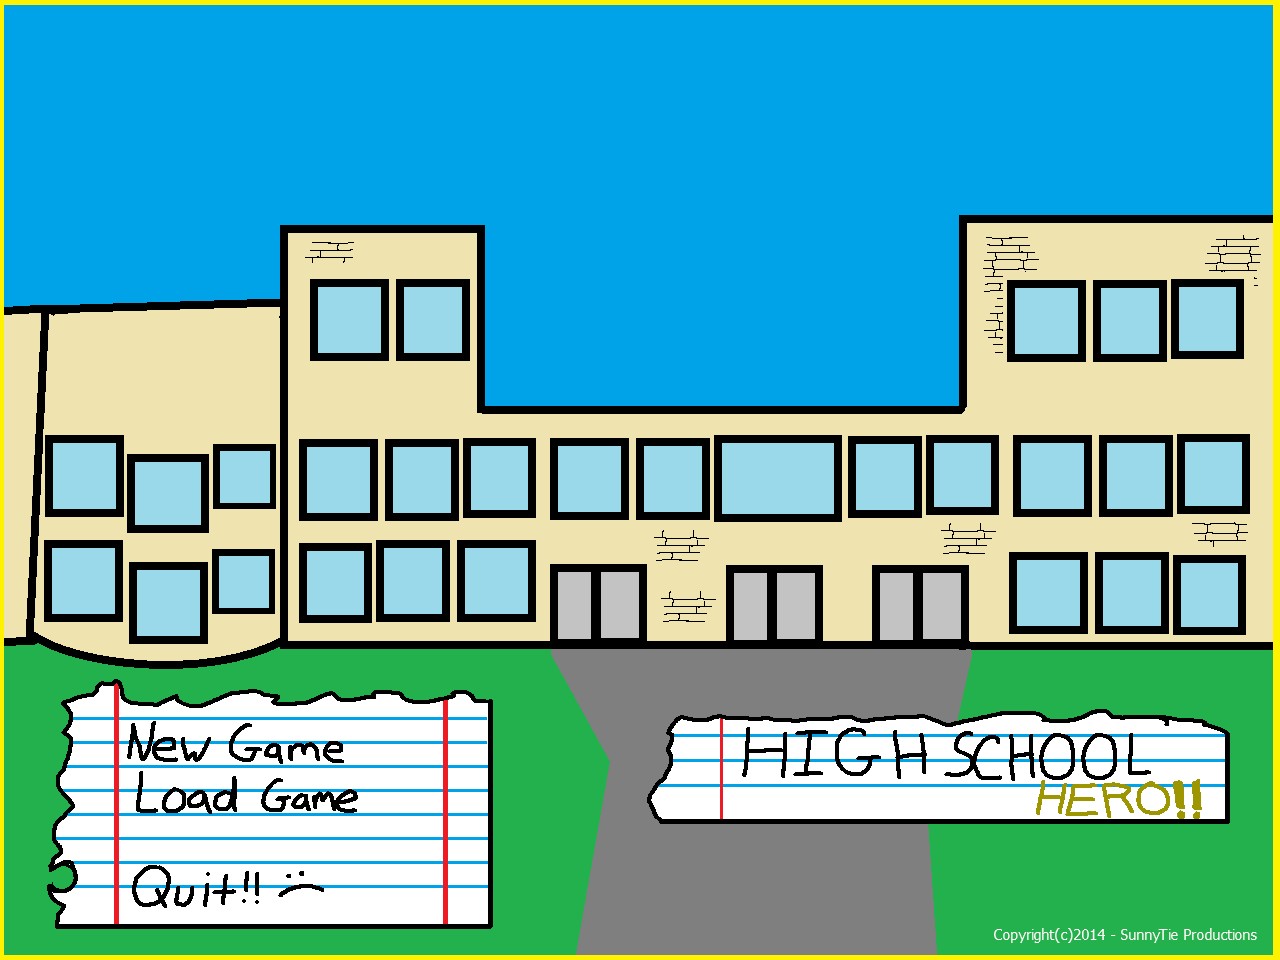 New Game
Load Game
Quit!! :(
HIGH SCHOOL
HERO!!
Copyright(c)2014 - SunnyTie Productions